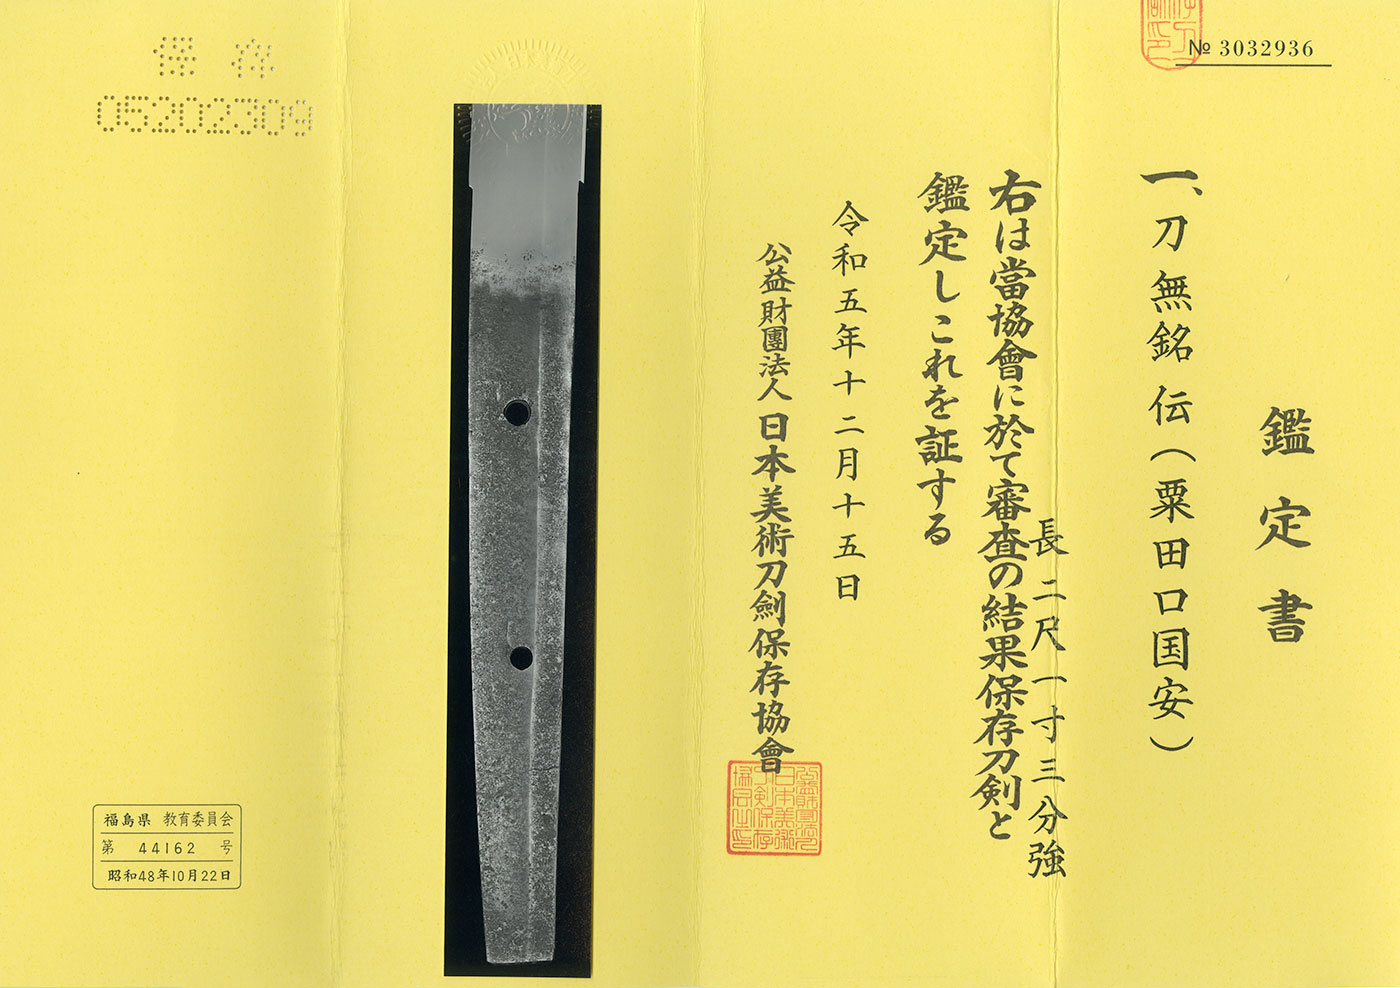 № 3032936
鑑定書
一、刀 無銘 伝(粟田口国安)
長二尺一寸三分強
右は當協會に於て審査の結果保存刀剣と
鑑定しこれを証する
令和五年十二月十五日
公益財團法人 日本美術刀劍保存協會
保存
05202309
福島県 教育委員会
第 44162 号
昭和48年10月22日